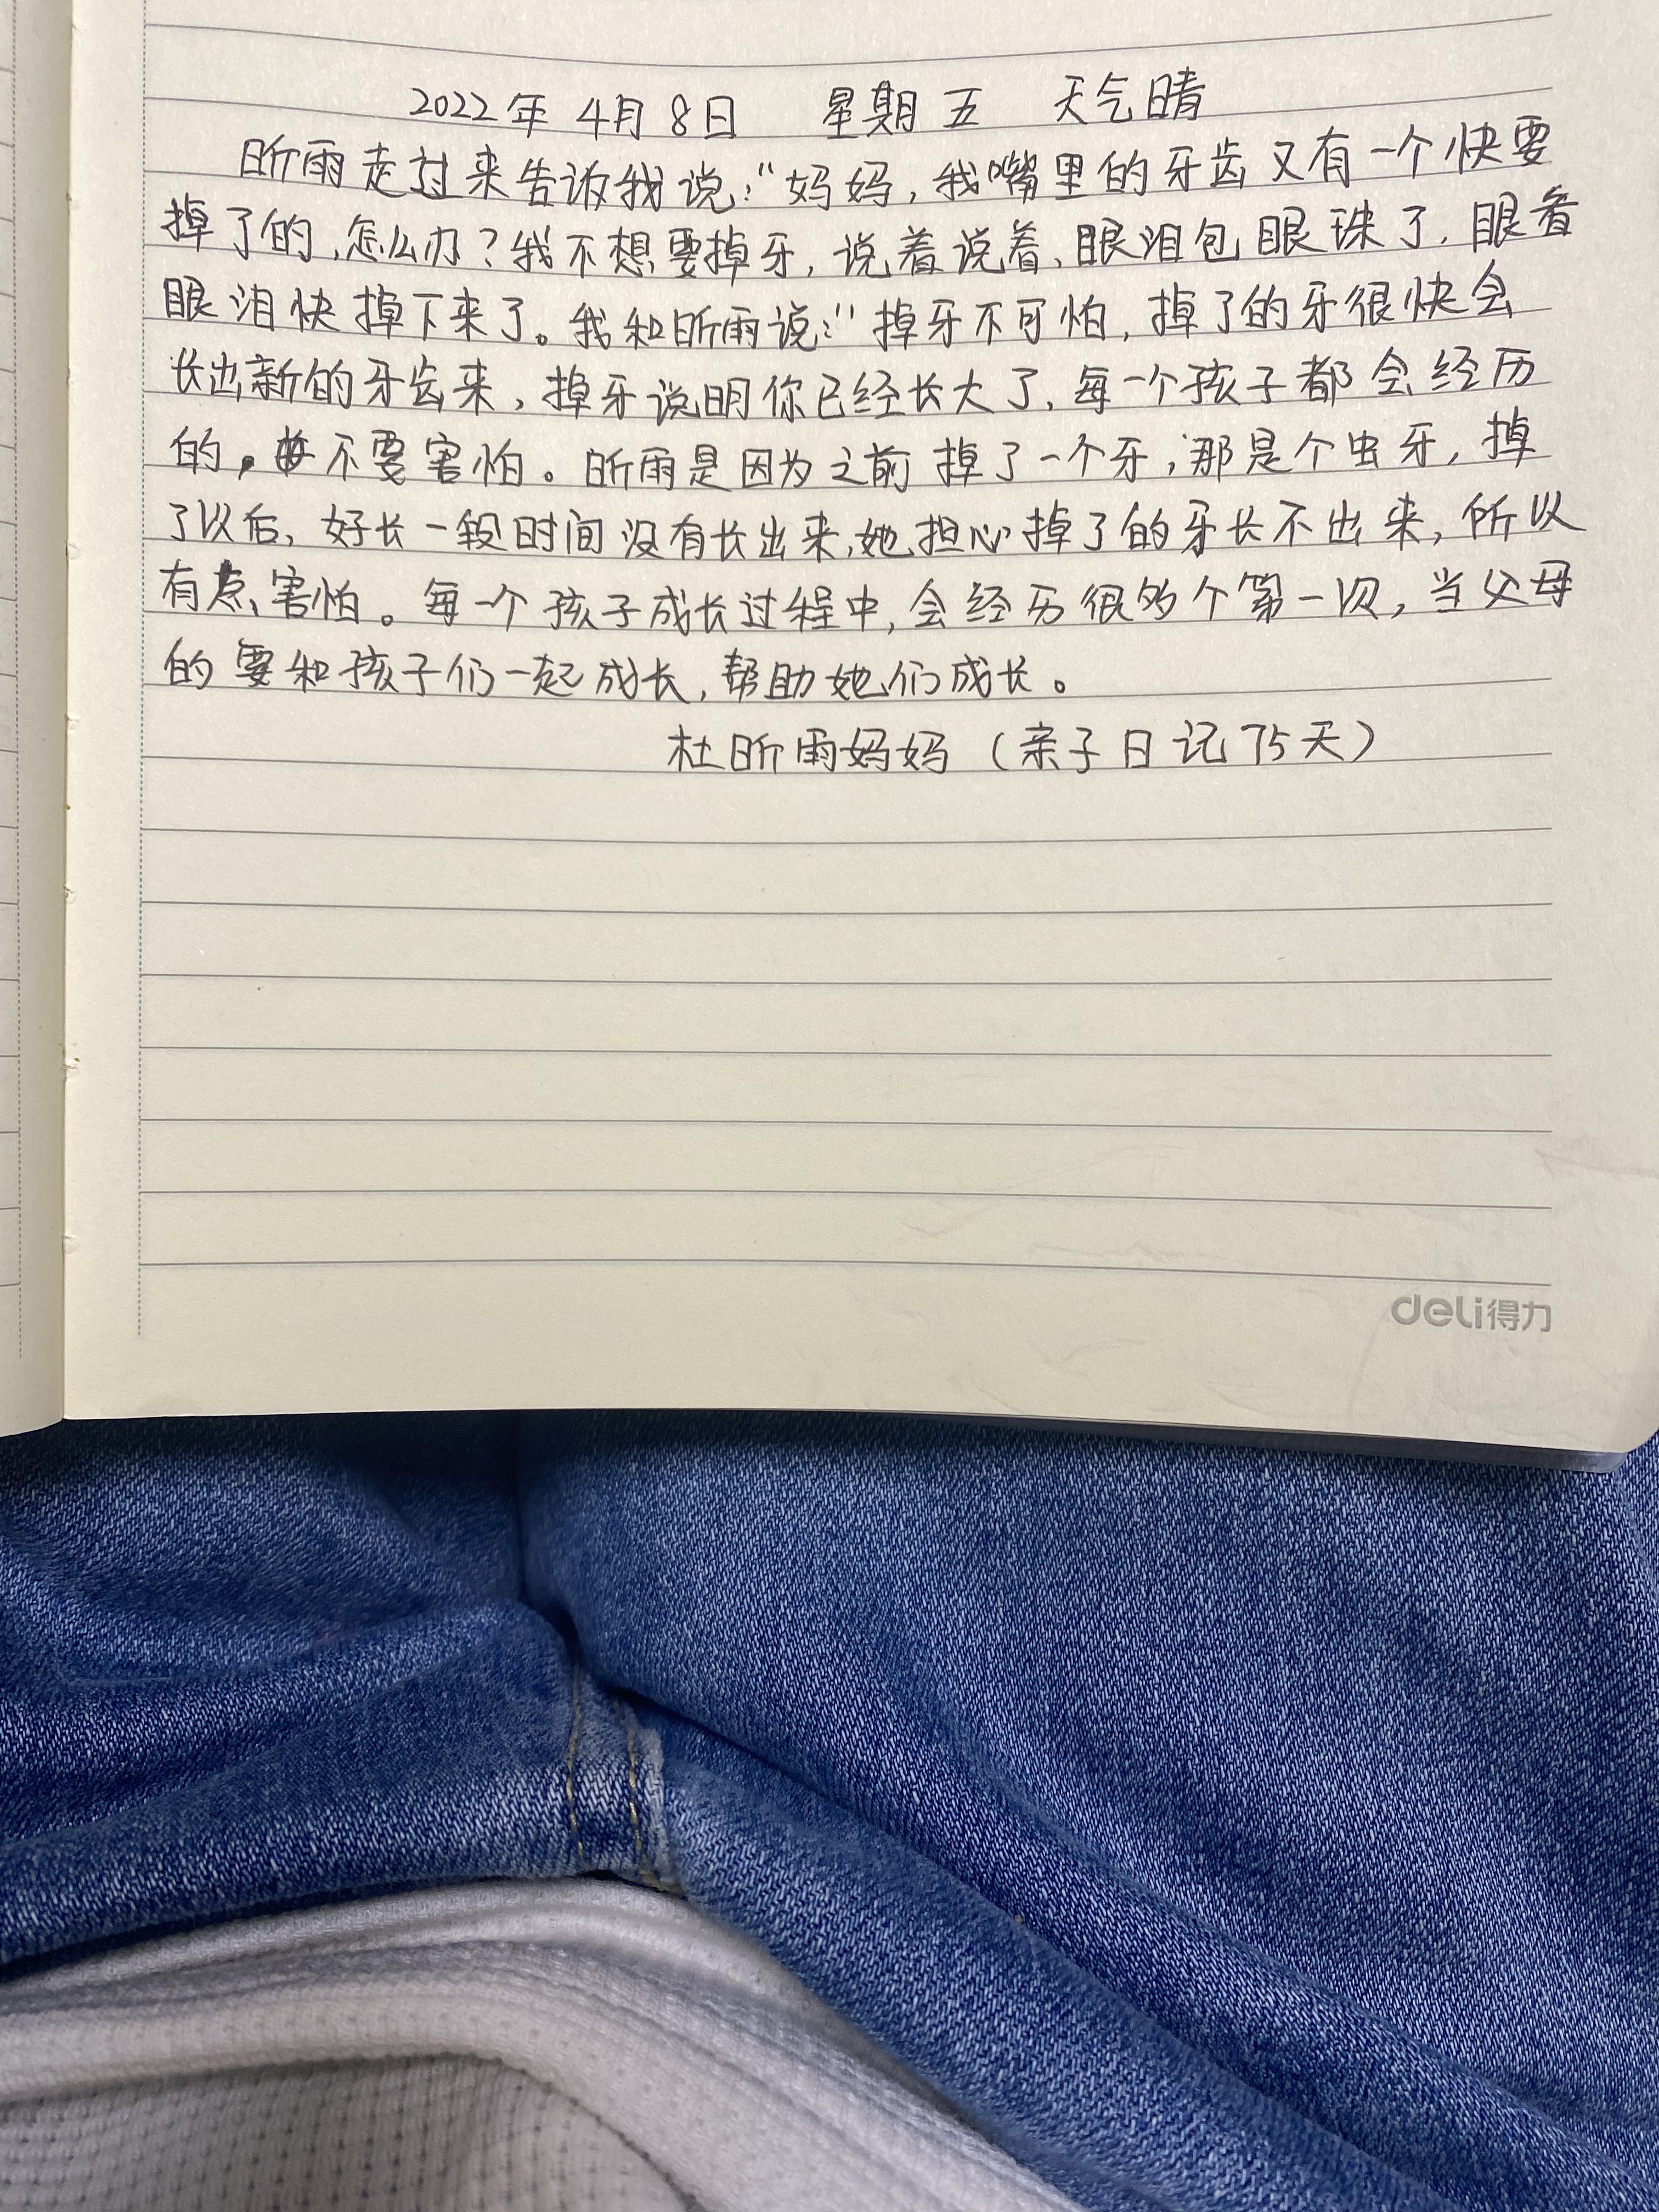 2022年 4月 8日 星期五 天气晴
昕雨走过来告诉我说：“妈妈，我嘴里的牙齿又有一个快要
掉了的，怎么办？我不想要掉牙，说着说着，眼泪包眼珠了，眼看
眼泪快掉下来了。我和昕雨说：“掉牙不可怕，掉了的牙很快会
长出新的牙齿来，掉牙说明你已经长大了，每一个孩子都会经历
的，不要害怕。昕雨是因为之前掉了一个牙，那是个虫牙，掉
了以后，好长一段时间没有长出来，她担心掉了的牙长不出来，所以
有点害怕。每一个孩子成长过程中，会经历很多个第一次，当父母
的要和孩子们一起成长，帮助她们成长。
杜昕雨妈妈（亲子日记75天）
deli得力